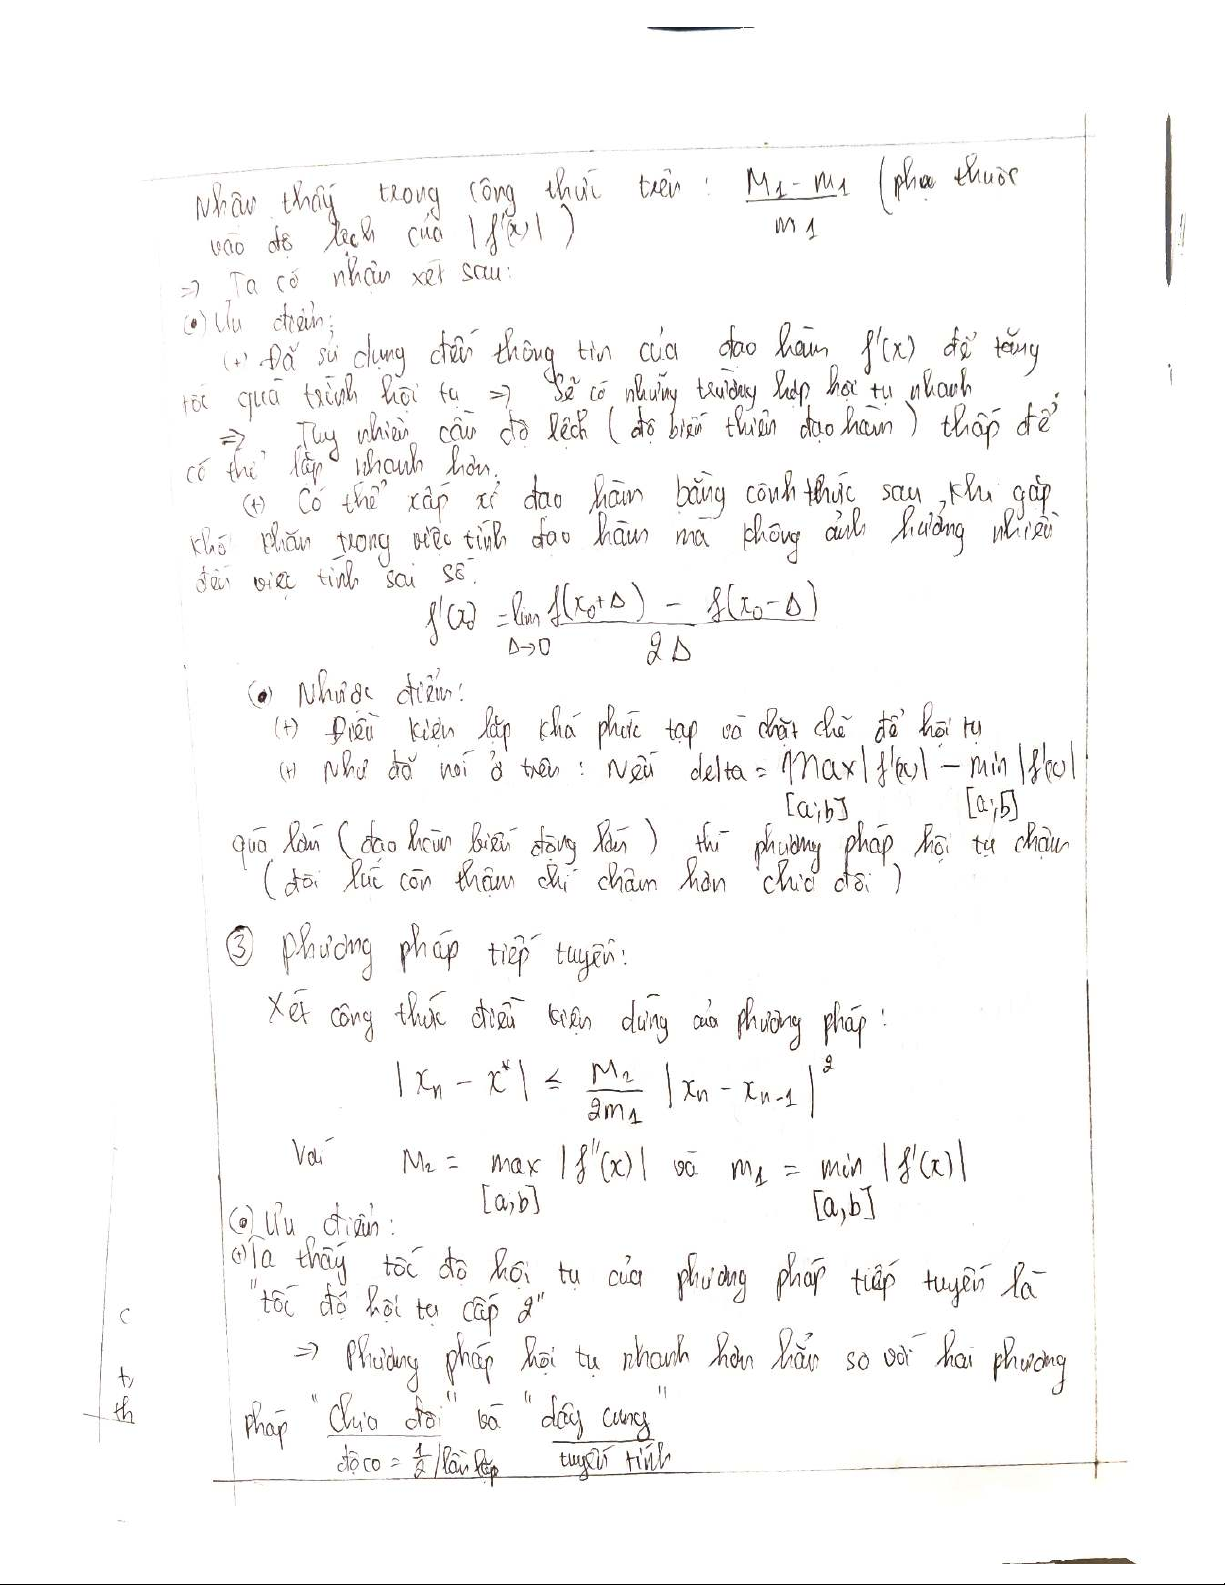 Nhận thấy trong công thức trên : \frac{M_1 - m_1}{m_1} (phụ thuộc
vào độ lệch của |f'(x)| )
=> Ta có nhận xét sau:
(•) Ưu điểm:
(+) Đã sử dụng đến thông tin của đạo hàm f'(x) để tăng
tốc quá trình hội tụ => Sẽ có những trường hợp hội tụ nhanh
=> Tuy nhiên cần độ lệch ( độ biến thiên đạo hàm ) thấp để
có thể lặp nhanh hơn.
(+) Có thể xấp xỉ đạo hàm bằng cônh thức sau , khi gặp
khó khăn trong việc tính đạo hàm mà không ảnh hưởng nhiều
đến việc tính sai số.
f'(x_0) = \lim_{Δ→0} \frac{f(x_0+Δ) - f(x_0-Δ)}{2Δ}
(•) Nhược điểm:
(+) Điều kiện lặp khá phức tạp và chặt chẽ để hội tụ
(+) Như đã nói ở trên : Nếu delta = Max_{[a;b]} |f'(x)| - min_{[a;b]} |f'(x)|
quá lớn ( đạo hàm biến động lớn ) thì phương pháp hội tụ chậm
( đôi lúc còn thậm chí chậm hơn chia đôi )
③ phương pháp tiếp tuyến:
Xét công thức điều kiện dừng của phương pháp :
|x_n - x^*| ≤ \frac{M_2}{2m_1} |x_n - x_{n-1}|^2
Với M_2 = max_{[a,b]} |f''(x)| và m_1 = min_{[a,b]} |f'(x)|
(•) Ưu điểm :
(+) Ta thấy tốc độ hội tụ của phương pháp tiếp tuyến là
"tốc độ hội tụ cấp 2"
=> Phương pháp hội tụ nhanh hơn hẳn so với hai phương
pháp "chia đôi" và "dây cung"
độ co = \frac{1}{2} / lần lặp tuyến tính
c
t,
th